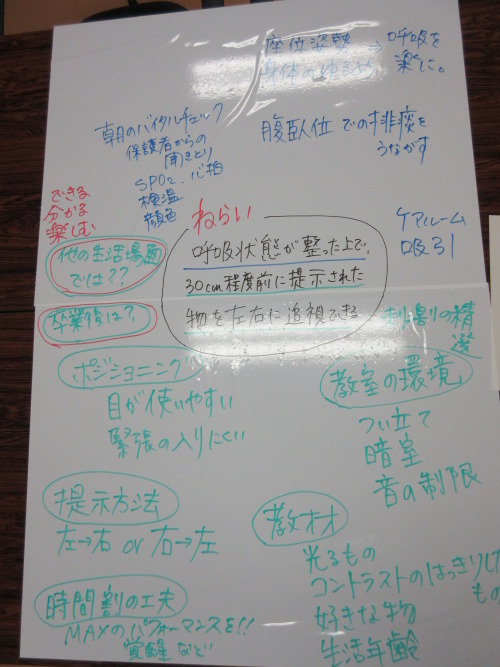 座位姿勢 → 呼吸を
身体のゆるめ 楽に。
朝のバイタルチェック
保護者からの
聞きとり
SPO2、心拍
検温
顔色
腹臥位での排痰を
うながす
できる
分かる
楽しむ
ねらい
ケアルーム
吸引
他の生活場面
では??
卒業後は?
呼吸状態が整った上で、
30cm程度前に提示された
物を左右に追視できる
刺激の精
選
ポジショニング
目が使いやすい
緊張の入りにくい
教室の環境
つい立て
暗室
音の制限
提示方法
左→右 or 右→左
教材
光るもの
コントラストのはっきりした
もの
好きな物
生活年齢
時間割の工夫
MAXのパフォーマンスを!!
覚醒など